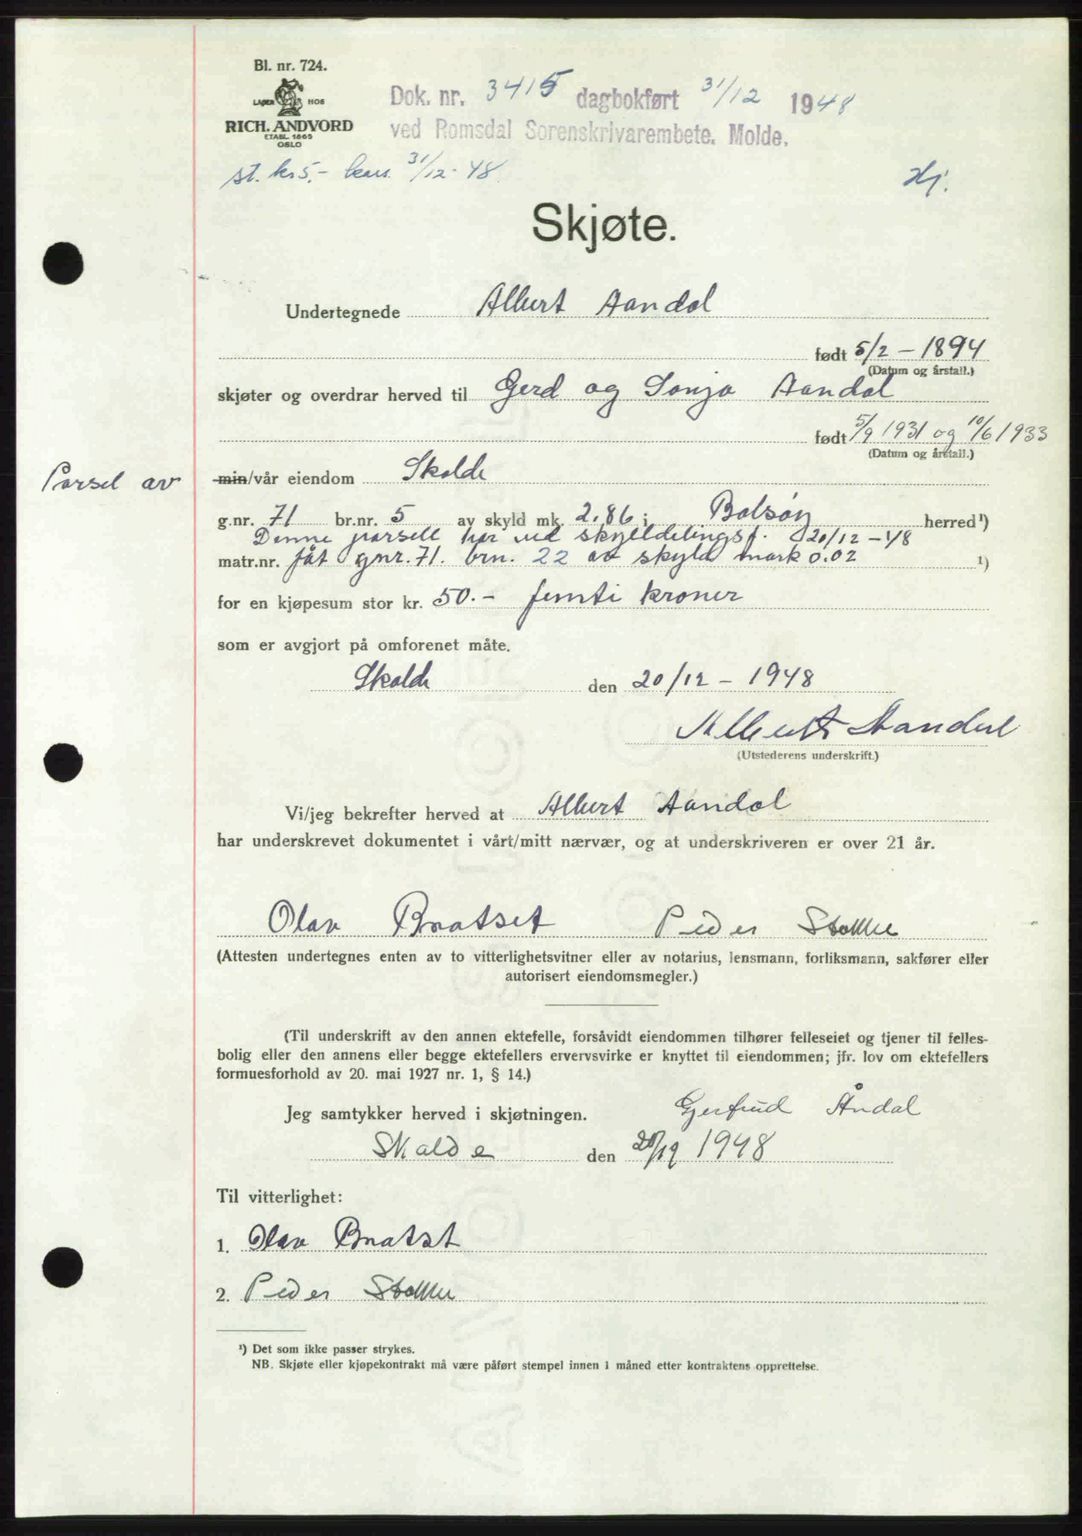 Bl. nr. 724.
LAGER HOS
RICH. ANDVORD
ETABL. 1865
OSLO
Dok. nr. 3415 dagbokført 31/12 1948
ved Romsdal Sorenskrivarembete. Molde.
st. kr 5.- kass. 31/12-48.
Skjøte.
Undertegnede Albert Aandal
født 5/2 - 1894
(Datum og årstall.)
skjøter og overdrar herved til Gerd og Sonja Aandal
født 5/9 1931 og 10/6 1933
(Datum og årstall.)
Parsel av min/vår eiendom Skalde
g.nr. 71 br.nr. 5 av skyld mk. 2,86 i Bolsøy herred ¹)
Denne parsell har ved skylddelingsf. 20/12 - 48
matr.nr. fåt gnr. 71. brn. 22 av skyld mark 0.02 ¹)
for en kjøpesum stor kr. 50.- femti kroner
som er avgjort på omforenet måte.
Skalde den 20/12 - 1948
Albert Aandal
(Utstederens underskrift.)
Vi/jeg bekrefter herved at Albert Aandal
har underskrevet dokumentet i vårt/mitt nærvær, og at underskriveren er over 21 år.
Olav Bratset Peder Stokke
(Attesten undertegnes enten av to vitterlighetsvitner eller av notarius, lensmann, forliksmann, sakfører eller
autorisert eiendomsmegler.)
(Til underskrift av den annen ektefelle, forsåvidt eiendommen tilhører felleseiet og tjener til felles-
bolig eller den annens eller begge ektefellers ervervsvirke er knyttet til eiendommen; jfr. lov om ektefellers
formuesforhold av 20. mai 1927 nr. 1, § 14.)
Jeg samtykker herved i skjøtningen. Gjertrud Åndal
Skalde den 20/12 1948
Til vitterlighet:
1. Olav Bratset
2. Peder Stokke
¹) Det som ikke passer strykes.
NB. Skjøte eller kjøpekontrakt må være påført stempel innen 1 måned etter kontraktens opprettelse.